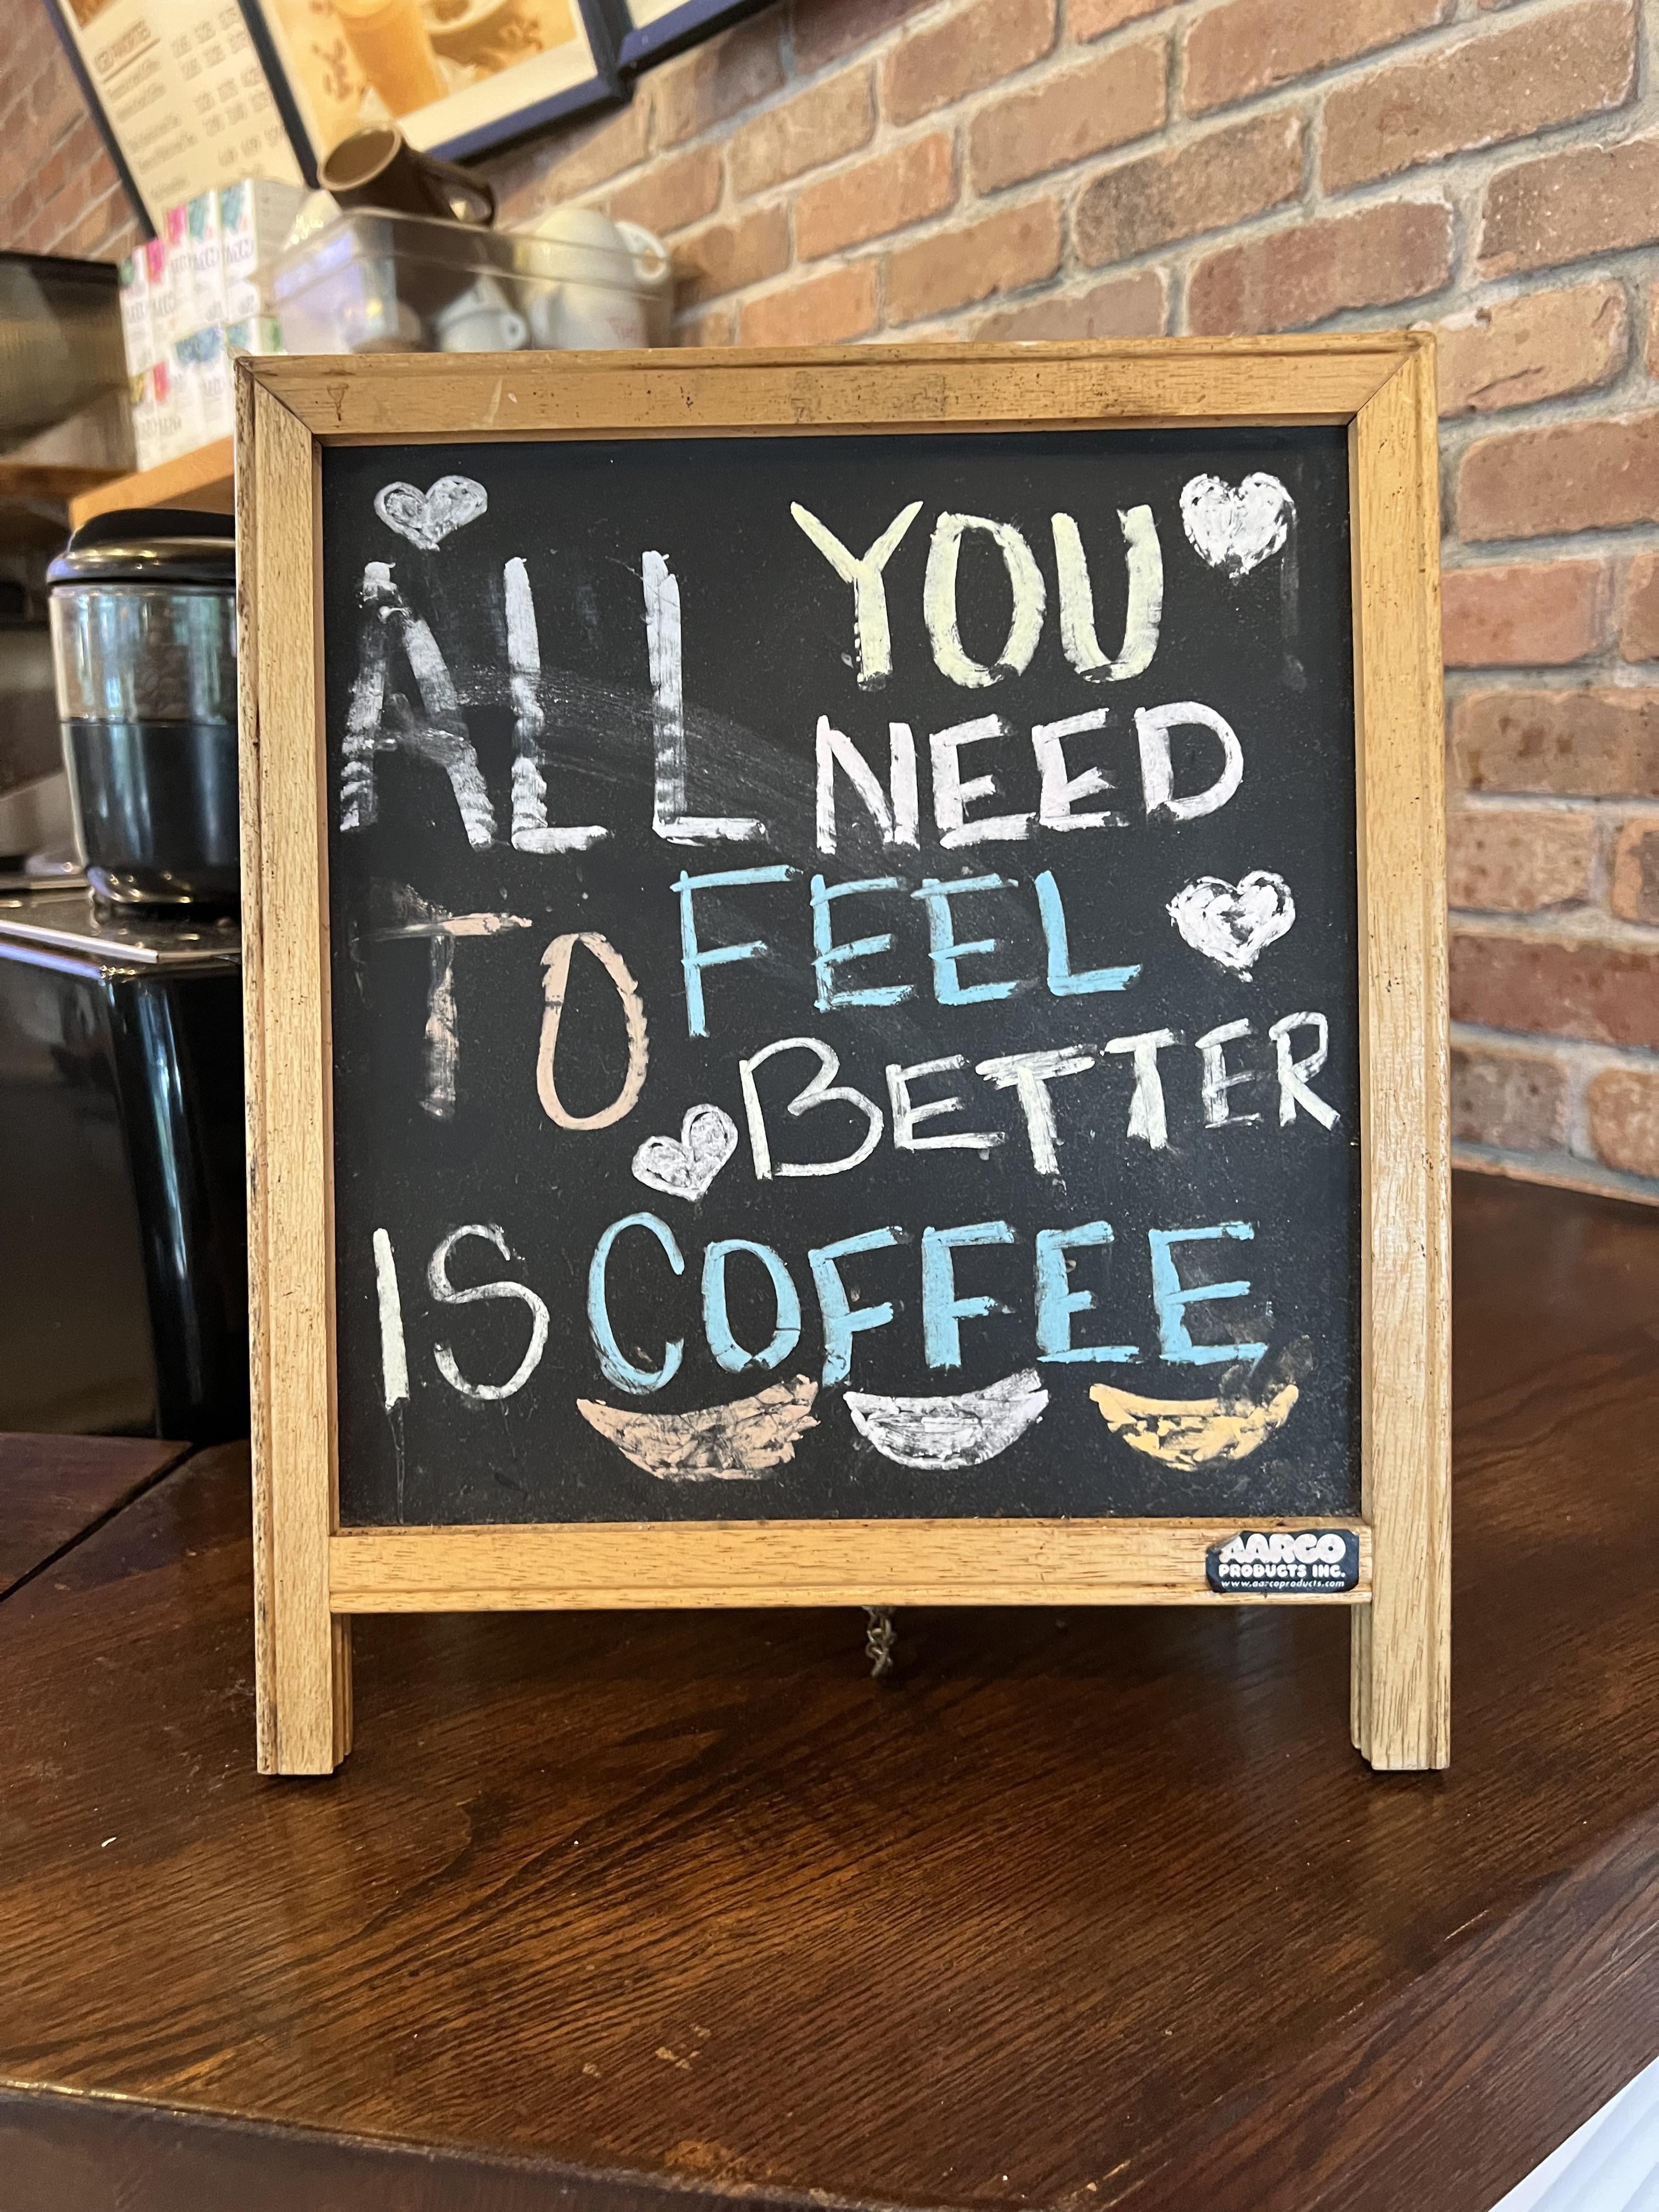 ALL YOU
NEED
TO FEEL
BETTER
IS COFFEE
AARCO
PRODUCTS INC.
www.aarcoproducts.com